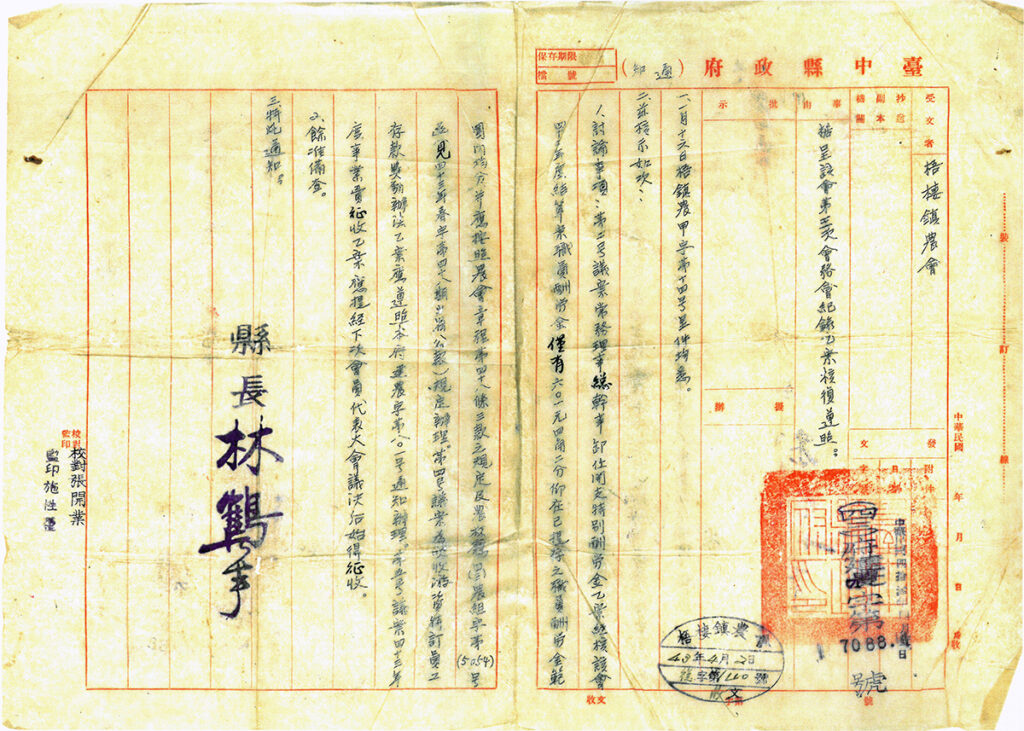 臺中縣政府(通知)
保存期限
檔號
受文者
梧棲鎮農會
抄送
副本
機關
事由
據呈該會第三次會務會紀錄乙案核復遵照:
批示
擬辦
發文
附件
日
字
中華民國 年 月 日
四三府建字第
7088.
號
一、一月十六日梧鎮農甲字第十四号呈件均悉。
二、茲核示如次:
1.討論事項:第二号議案常務理事總幹事卸任開支特別酬勞金乙案經核該會
四十二年度結算案職員酬勞金僅有六〇一元四角二分仰在已提存之職員酬勞金範
圍內均分并應按照農會章程第四十八條三款之規定及農
(5054)号
函見四十三年春字第四十八期省公報)規定辦理。第四号議案為吸收游資精訂員工
存款獎勵辦法乙案應遵照本府建農字第八〇一号通知辦理。第五号議案四十三年
度事業費征收乙案應提經下次會員代表大會議決后始得征收。
2.餘准備查。
三、特此通知。
縣長林鶴年
校對
監印
校對張開業
監印施性
梧棲鎮農會
43年4月2日
字第110號
收文
收文
號
裝
訂
線